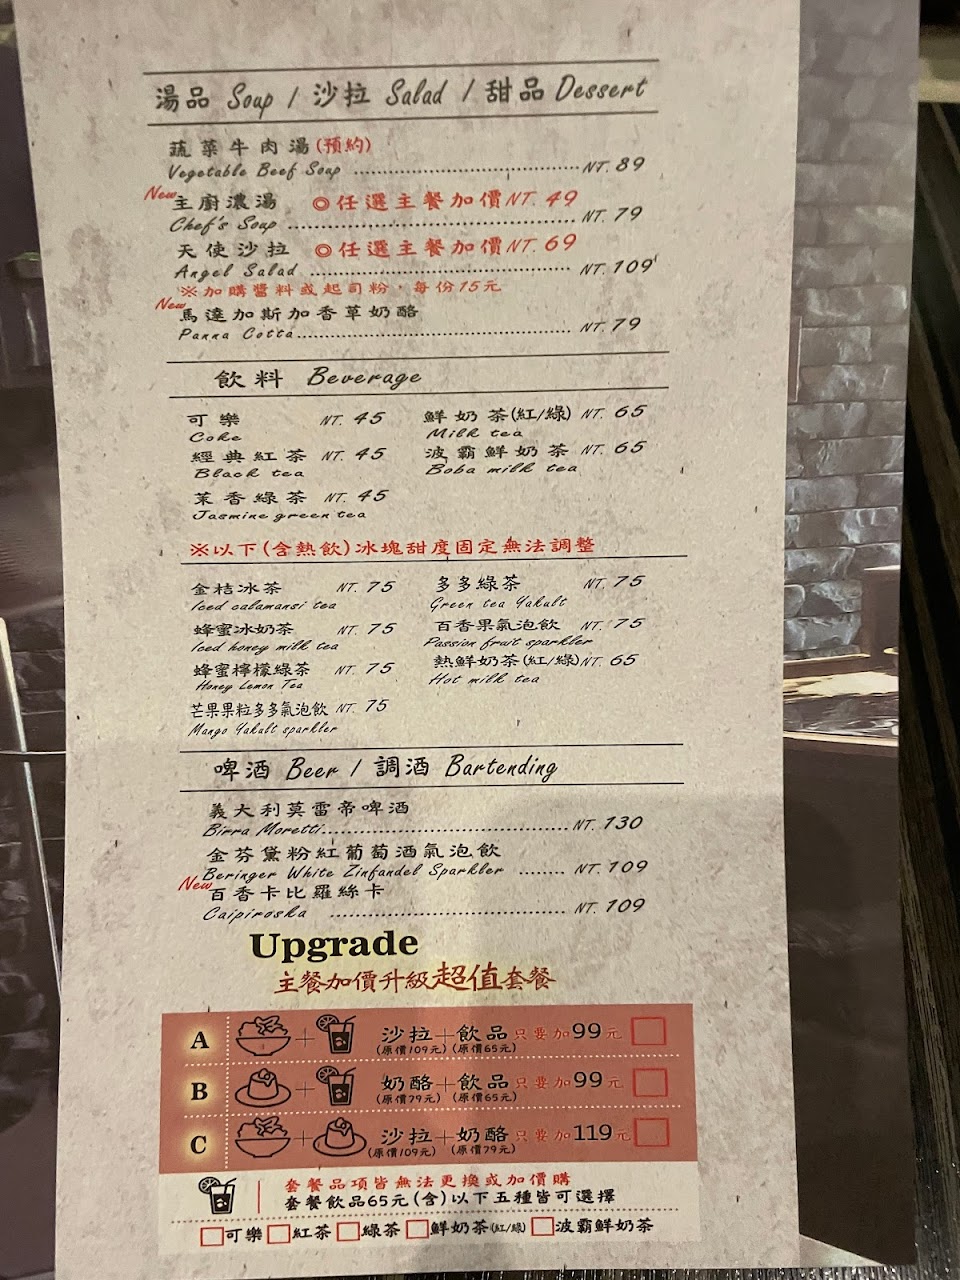 湯品 Soup / 沙拉 Salad / 甜品 Dessert
蔬菜牛肉湯(預約)
Vegetable Beef Soup NT. 89
New 主廚濃湯 ◎任選主餐加價NT. 49
Chef's Soup NT. 79
天使沙拉 ◎任選主餐加價NT. 69
Angel Salad NT. 109
※加購醬料或起司粉，每份15元
New 馬達加斯加香草奶酪
Panna Cotta NT. 79
飲料 Beverage
可樂 NT. 45 鮮奶茶(紅/綠) NT. 65
Coke Milk tea
經典紅茶 NT. 45 波霸鮮奶茶 NT. 65
Black tea Boba milk tea
茉香綠茶 NT. 45
Jasmine green tea
※以下(含熱飲)冰塊甜度固定無法調整
金桔冰茶 NT. 75 多多綠茶 NT. 75
Iced calamansi tea Green tea Yakult
蜂蜜冰奶茶 NT. 75 百香果氣泡飲 NT. 75
Iced honey milk tea Passion fruit sparkler
蜂蜜檸檬綠茶 NT. 75 熱鮮奶茶(紅/綠) NT. 65
Honey Lemon Tea Hot milk tea
芒果果粒多多氣泡飲 NT. 75
Mango Yakult sparkler
啤酒 Beer / 調酒 Bartending
義大利莫雷帝啤酒
Birra Moretti NT. 130
金芬黛粉紅葡萄酒氣泡飲
Beringer White Zinfandel Sparkler NT. 109
New 百香卡比羅絲卡
Caipiroska NT. 109
Upgrade
主餐加價升級超值套餐
A + 沙拉+飲品 只要加99元
(原價109元) (原價65元)
B + 奶酪+飲品 只要加99元
(原價79元) (原價65元)
C + 沙拉+奶酪 只要加119元
(原價109元) (原價79元)
套餐品項皆無法更換或加價購
套餐飲品65元(含)以下五種皆可選擇
可樂 紅茶 綠茶 鮮奶茶(紅/綠) 波霸鮮奶茶